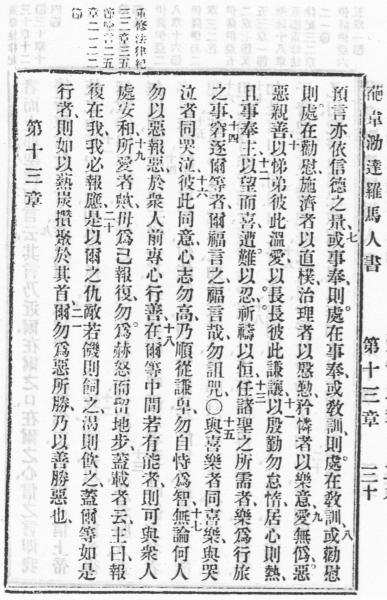 達羅馬人書 第十三章 三十
預言亦依信德之量七或事奉則處在事奉或教訓則處在教訓八或勸慰
則處在勸慰施濟者以直樸治理者以慇懃矜憐者以樂意九愛無偽惡
惡親善十以悌弟彼此溫愛以長長彼此謙讓十一以慇勤勿怠惰居心則熱
且事奉主十二以望而喜遭難以忍祈禱以恒十三任諸聖之所需者樂為行旅
之事十四窘逐爾等者爾福言之福言哉勿詛咒○十五與喜樂者同喜樂與哭
泣者同哭泣十六彼此同意心志勿高乃順從謙卑勿自恃為智無論何人
勿以惡報惡於眾人前專心行善在爾等中間十八若有能者則可與眾人
處安和十九所愛者歟毋為己報復勿為赫怒而留地步蓋載者云主曰報
復在我我必報應二十是以爾之仇敵若饑則飼之渴則飲之蓋爾等如是
行者則如以熱炭攢聚於其首二一爾勿為惡所勝乃以善勝惡也
第十三章
重修法律紀
三二章三五
節喻言二五
章二一二二
節